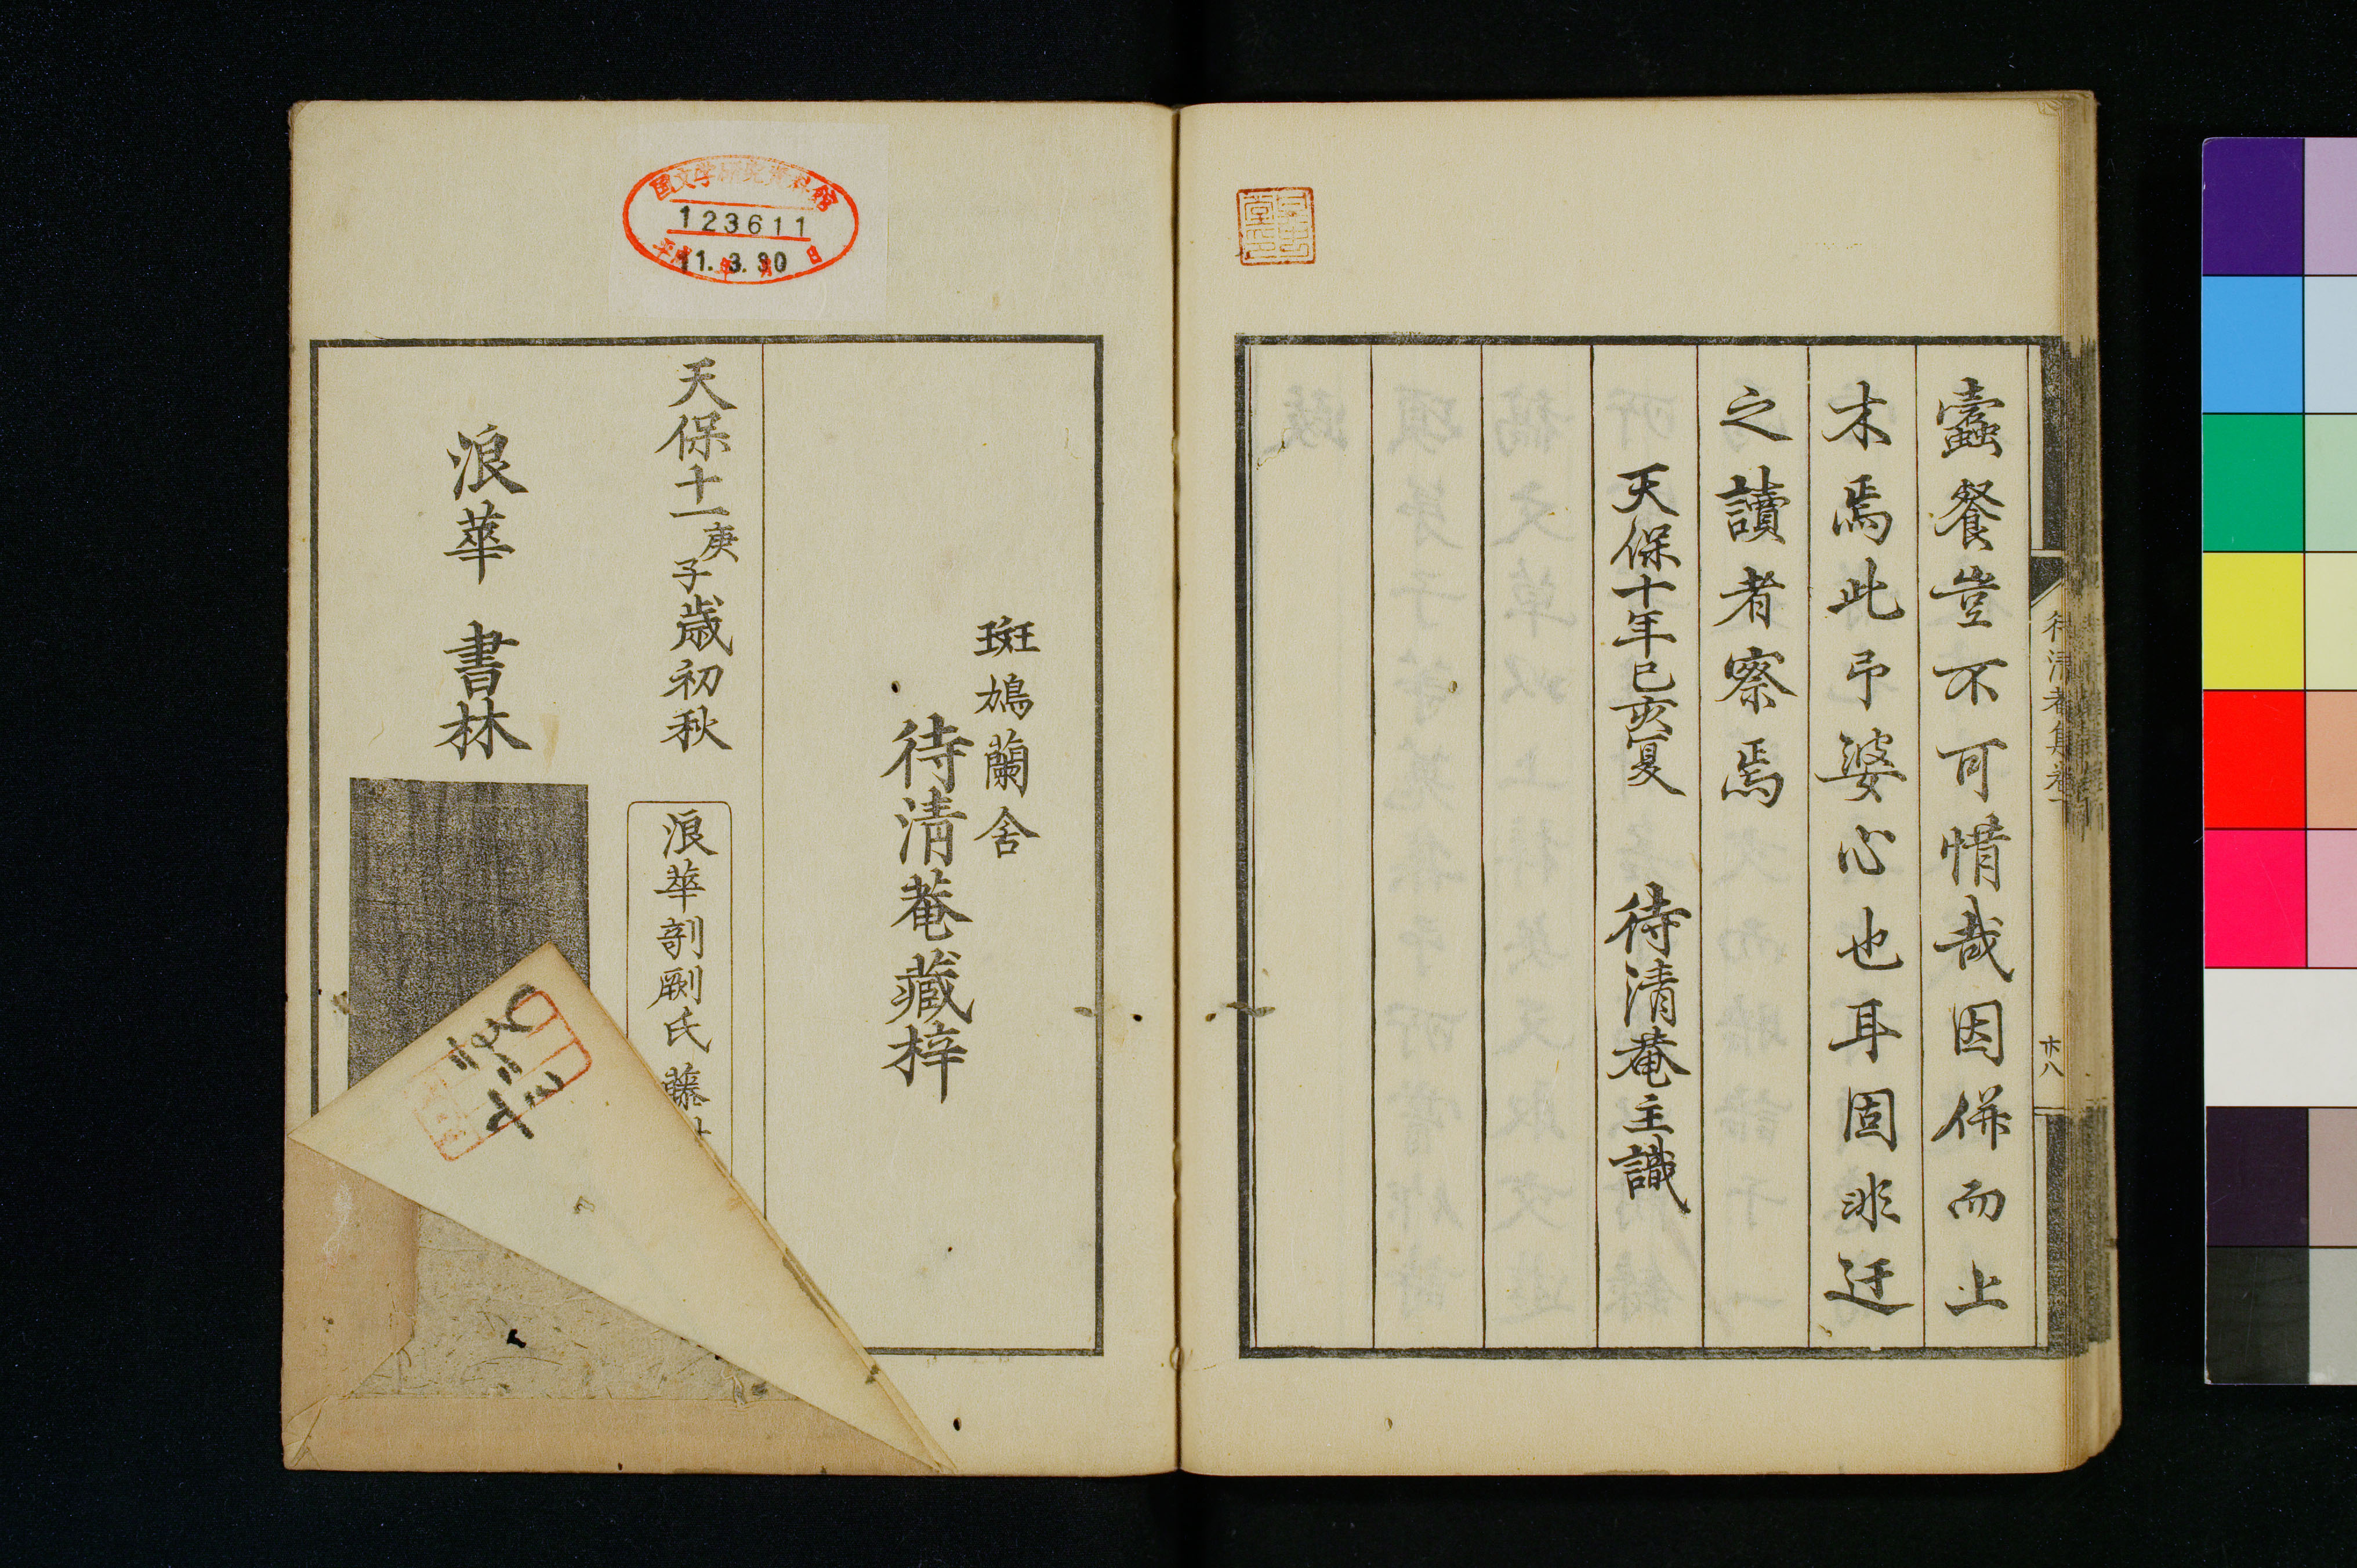 蠧餐豈不可惜哉因併而上
木焉此予婆心也耳固非迂
之讀者察焉
天保十年己亥夏 待清菴主識
待清者集卷一
廿八
斑鳩蘭舍
待清菴藏梓
天保十一庚子歳初秋
浪華剞劂氏 藤
浪華 書林
国文学研究資料館
123611
平成 年 月 日
11.3.30